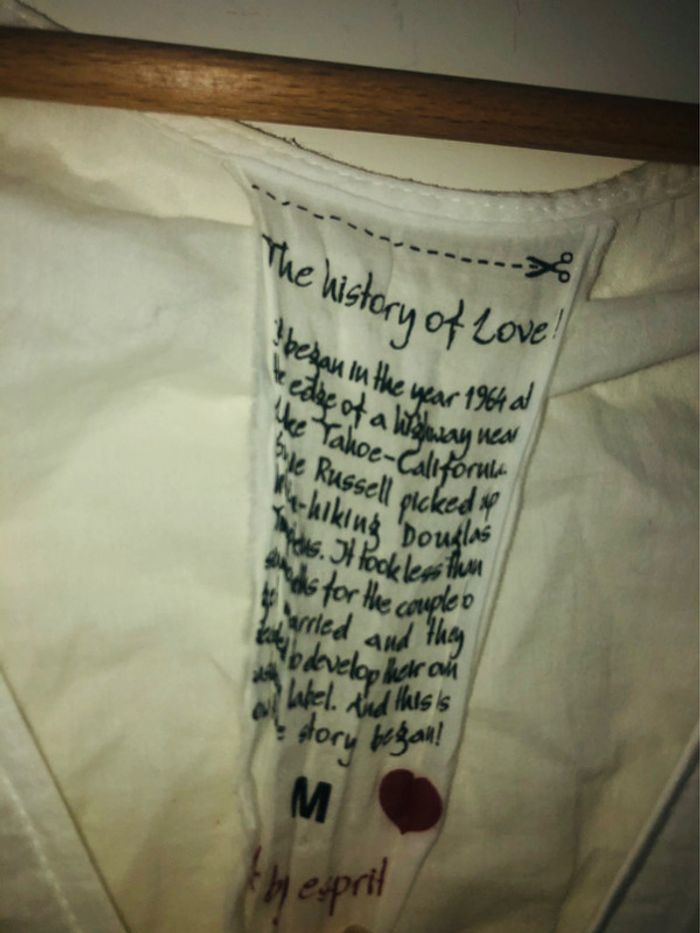 The history of Love!
began in the year 1964 at
edge of a highway near
Tahoe-California
Russell picked up
-hiking Douglas
It took less than
for the couple o
married and they
to develop their own
label. And this is
story began!
M
by esprit